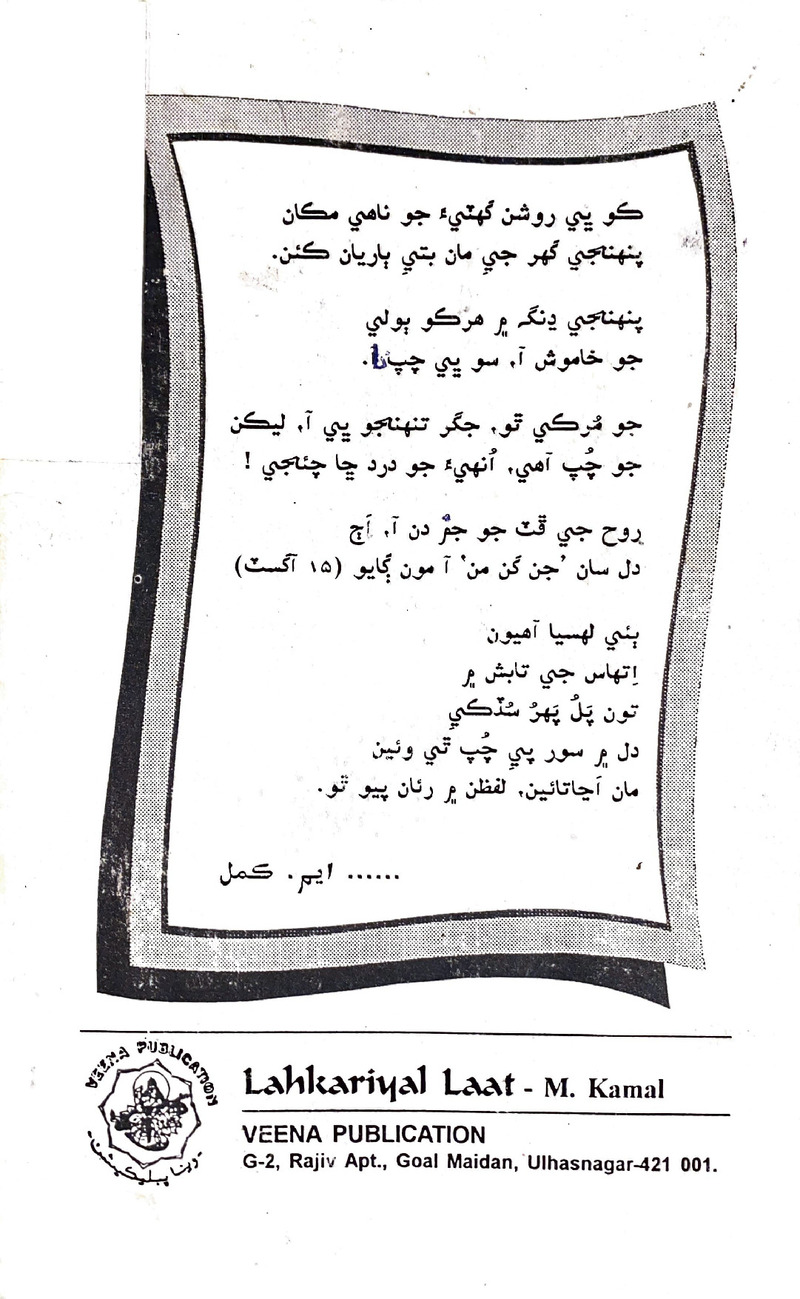 ڪو ڀي روشن گهٽيءَ جو ناهي مڪان
پنهنجي گهر جي مان بتي ٻاريان ڪئن.
پنهنجي ڍنگہ ۾ هرڪو ٻولي
جو خاموش آ, سو ڀي چپ
جو مُرڪي ٿو, جگر تنهنجو ڀي آ, ليڪن
جو چُپ آهي, اُنهيءَ جو درد ڇا چئجي !
روح جي ڦٽ جو جمُ دن آ, اَڄ
دل سان ’جن گن من‘ آ مون ڳايو (١٥ آگسٽ)
ٻئي لهسيا آهيون
اِتهاس جي تابش ۾
تون پَلُ پَھرُ سُڏڪي
دل ۾ سور پيِ چُپ ٿي وئين
مان اَڃاتائين, لفظن ۾ رئان پيو ٿو.
...... ايم. ڪمل
VEENA PUBLICATION
وينا پبليڪيشن
Lahkariyal Laat - M. Kamal
VEENA PUBLICATION
G-2, Rajiv Apt., Goal Maidan, Ulhasnagar-421 001.